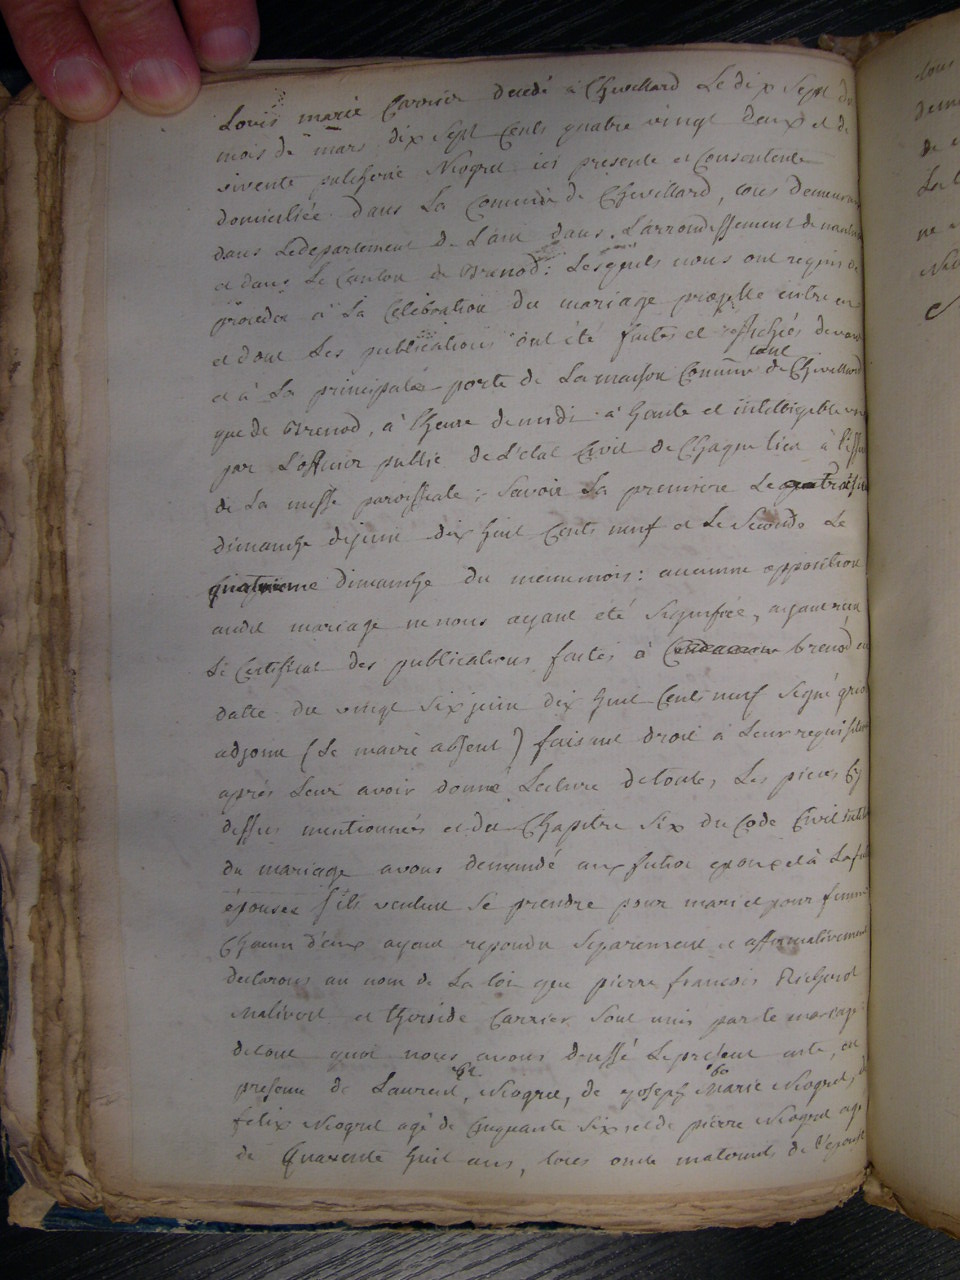 Louis marie Carrier decedé à Chevillard Le dix Sept du
mois de mars dix Sept Cents quatre vingt deux et de
vivente pulcherie Niogret ici presente et Consentente
domiciliée dans La Commune de Chevillard, tous demeurans
dans Ledepartement de L'ain dans L'arrondissement de nantua
et dans Le Canton de Brenod: Lesquels nous ont requis de
proceder à La Celebration du mariage projetté entre eux
et dont Les publications ont été faites et affichées devant
et à La principale porte de La maison Commune de Chevillard
tant
que de Brenod, à l'heure de midi à haute et intelligible voix
par L'officier public de L'etat Civil de Chaque Lieu à l'issue
de La messe paroissiale; Savoir La premiere Le
dimanche dejuin dix huit Cents neuf et Le Seconde Le
quatrieme dimanche du meme mois: aucunne opposition
audit mariage ne nous ayant été Signifiée, ayant reçu
Le Certificat des publications faites à brenod en
datte du vingt Six juin dix huit Cents neuf Signé
adjoint (Le maire absent) faisant droit à Leur requisition
après Leur avoir donné Lecture de toutes Les pieces Cy
dessus mentionnées et du Chapitre Six du Code Civil
du mariage avons demandé au futur epoux et à La future
épouse s'ils veulent Se prendre pour mari et pour femme
Chacun d'eux ayant repondu Separement et affirmativement
declarons au nom de La loi que pierre francois Richerot
Malivert et Carrier Sont unis par le mariage
de tout quoi nous avons dressé Le present acte, en
presence de Laurent Niogret, de joseph Marie Niogret, de
felix Niogret agé de Cinquante Six et de pierre Niogret agé
de Quarente huit ans, tous oncle maternels de l'epouse